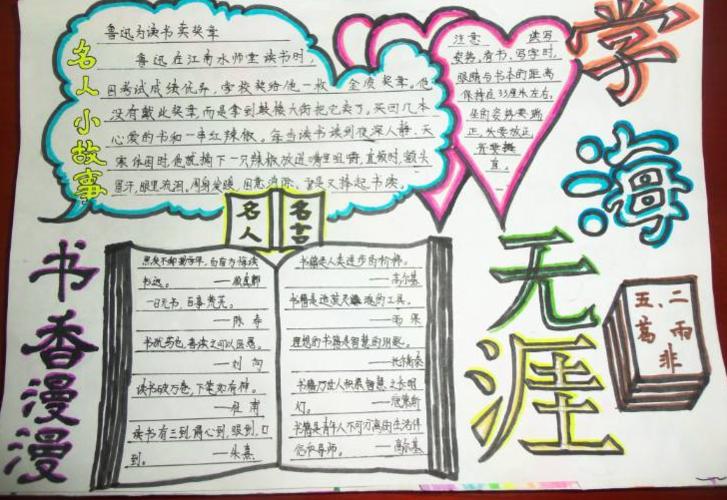 名人小故事
鲁迅为读书卖奖章
鲁迅在江南水师堂读书时，
因考试成绩优异，学校奖给他一枚金质奖章。他
没有戴此奖章，而是拿到鼓楼大街把它卖了，买回几本
心爱的书和一串红辣椒。每当读书读到夜深人静、天
寒体困时，他就摘下一只辣椒放进嘴里咀嚼，直辣时，额头
冒汗，眼里流泪。周身发暖，困意消除，于是又捧起书读。
注意 读写
姿势，看书、写字时，
眼睛与书本的距离
保持在33厘米左右，
坐的姿势要端
正，头要放正
直。
学海
无涯
书香漫漫
名人
名言
黑发不知勤学早，白首方悔读
书迟。——颜真卿
一日无书，百事荒芜。
——陈寿
书犹药也，善读之可以医愚。
——刘向
读书破万卷，下笔如有神。
——杜甫
读书有三到，谓心到，眼到，口
到。——朱熹
书籍是人类进步的阶梯。
——高尔基
书籍是造就灵魂的工具。
——雨果
理想的书籍是智慧的钥匙。
——托尔斯泰
灯。
书籍是青年人不可分离的生活伴
侣和导师。——高尔基
二雨非
五、葛